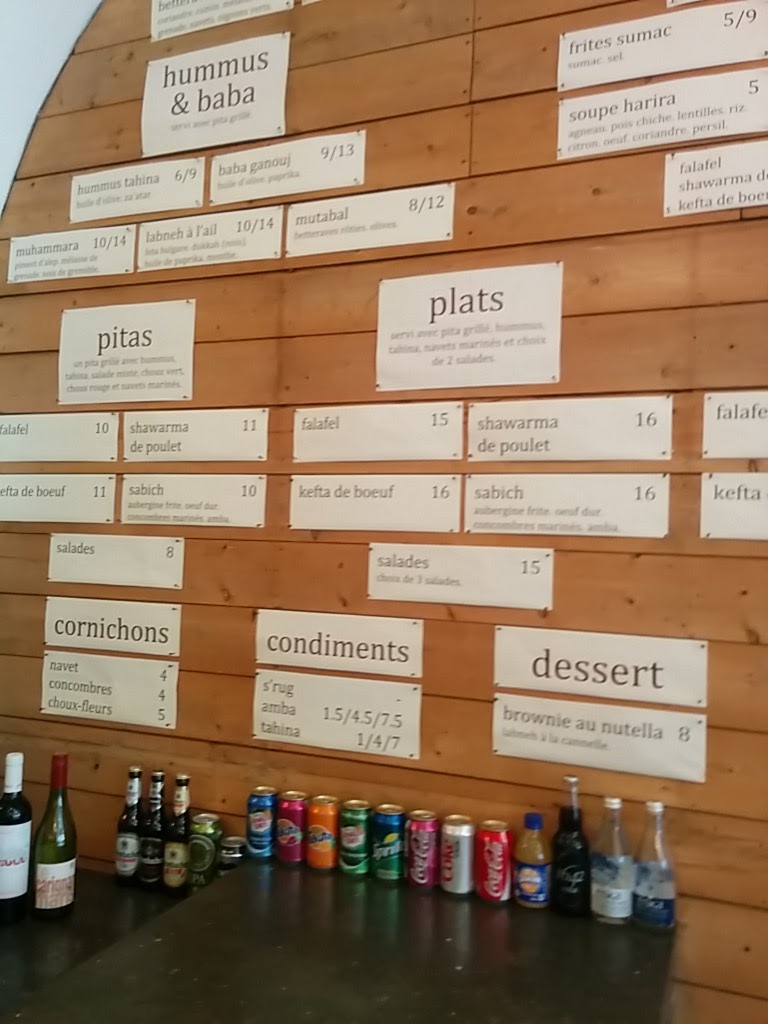 coriandre, sumac,
grenade, navets, oignons verts.
hummus
& baba
servi avec pita grillé.
hummus tahina 6/9
huile d'olive, za'atar.
baba ganouj 9/13
huile d'olive, paprika.
muhammara 10/14
piment d'alep, mélasse de
grenade, noix de grenoble.
labneh à l'ail 10/14
feta bulgare, dukkah (noix),
huile de paprika, menthe.
mutabal 8/12
betteraves rôties, olives.
frites sumac 5/9
sumac, sel.
soupe harira 5
agneau, pois chiche, lentilles, riz,
citron, oeuf, coriandre, persil.
falafel
shawarma de
kefta de boeuf
pitas
un pita grillé avec hummus,
tahina, salade mixte, choux vert,
choux rouge et navets marinés.
falafel 10
shawarma 11
de poulet
kefta de boeuf 11
sabich 10
aubergine frite, oeuf dur,
concombres marinés, amba.
salades 8
plats
servi avec pita grillé, hummus,
tahina, navets marinés et choix
de 2 salades.
falafel 15
shawarma 16
de poulet
kefta de boeuf 16
sabich 16
aubergine frite, oeuf dur,
concombres marinés, amba.
salades 15
choix de 3 salades.
falafe
kefta
cornichons
navet 4
concombres 4
choux-fleurs 5
condiments
s'rug -
amba 1.5/4.5/7.5
tahina 1/4/7
dessert
brownie au nutella 8
labneh à la cannelle.
Fanta
Fanta
Sprite
Coca-Cola
Coca-Cola